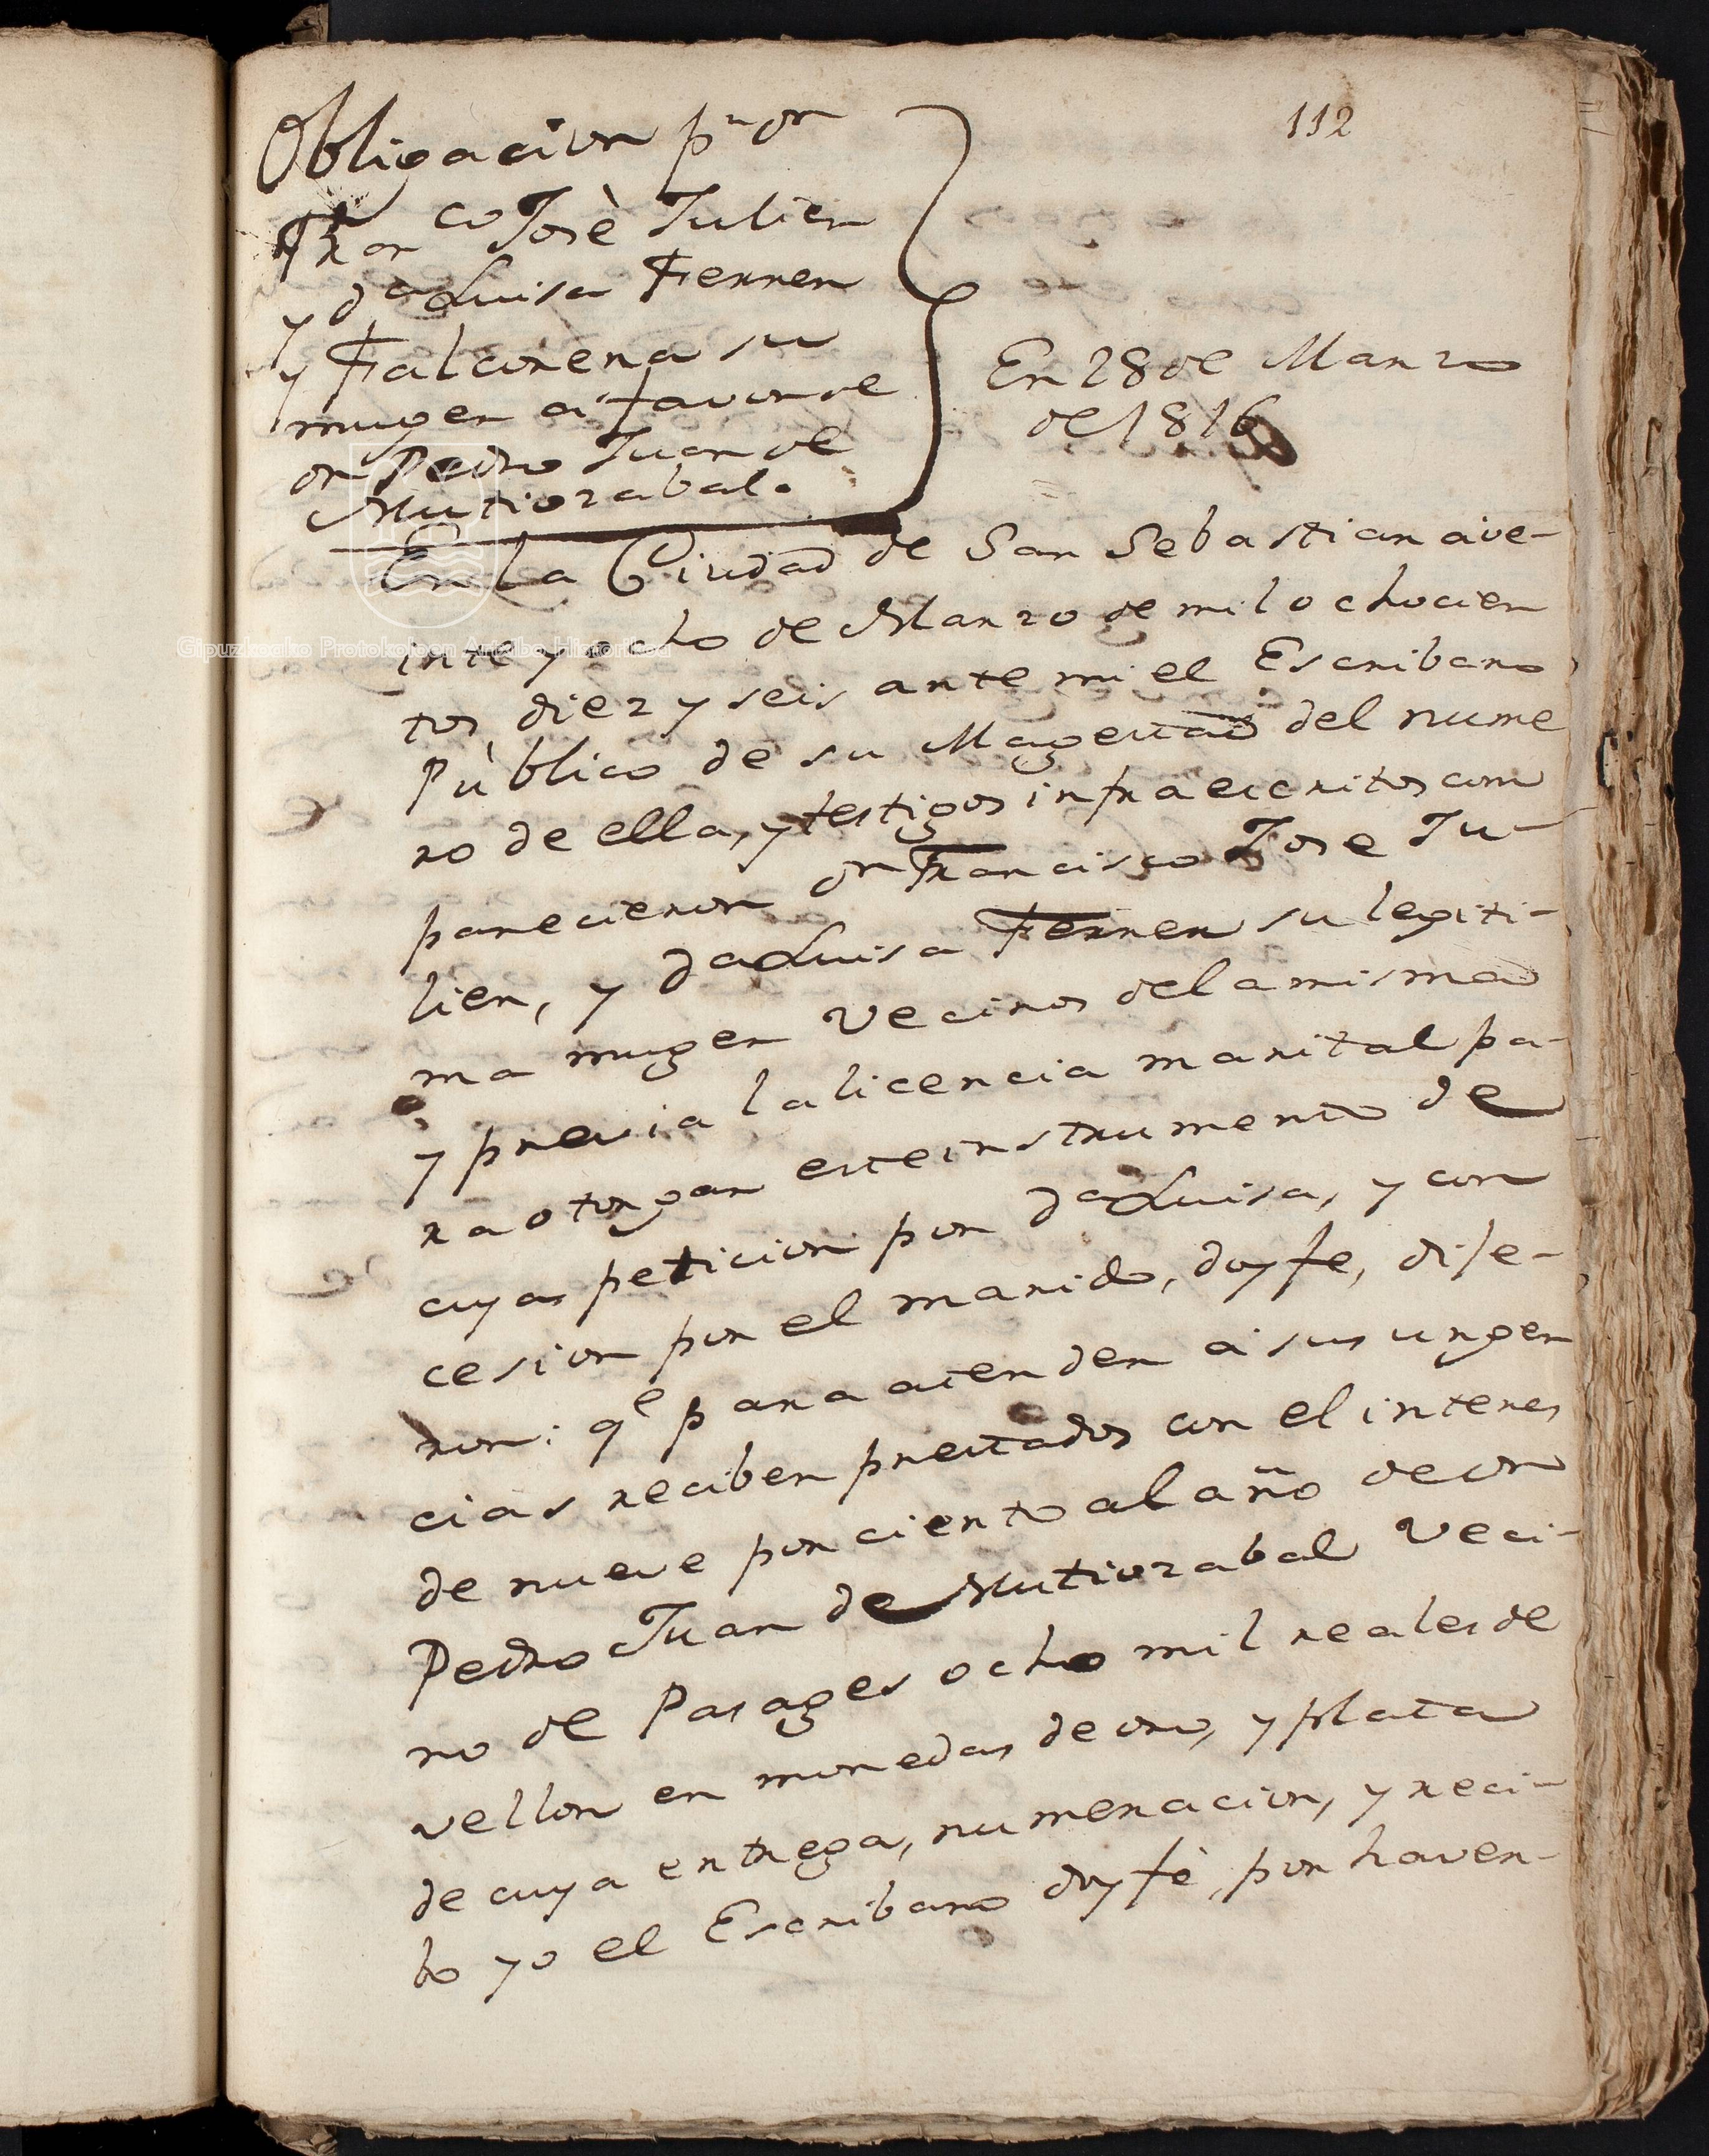 112
Obligacion pr dn
Franco Josè Julien
y da Luisa Ferrer
y Falcorena su
muger à favor de
dn Pedro Juan de
Mutiozabal.
En 28 de Marzo
de 1816
En la Ciudad de San Sebastian à ve-
inte y ocho de Marzo de mil ochocien
tos diez y seis ante mi el Escribano
Pùblico de su Magestad del nume
ro de ella, y testigos infraescritos com
parecieron dn Francisco Jose Ju-
lien, y da Luisa Ferrer su legiti-
ma muger vecinos de la misma
y previa la licencia marital pa-
ra otorgar este instrumento de
cuya peticion por da Luisa, y con
cesion por el marido, doy fe, dije-
ron: qe para atender à sus urgen
cias reciben prestados con el interes
de nueve por ciento al año de dn
Pedro Juan de Mutiozabal veci-
no de Pasages ocho mil reales de
vellon en monedas de oro, y plata
de cuya entrega, numeracion, y reci-
bo yo el Escribano doy fè, por haver-
Gipuzkoako Protokoloen Artxibo Historikoa